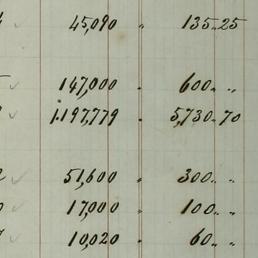 45,090 " 135.. 25
147,000 " 600.. "
1.197,779 " 5,730.. 70
51,600 " 300.. "
17,000 " 100.. "
10,020 " 60.. "